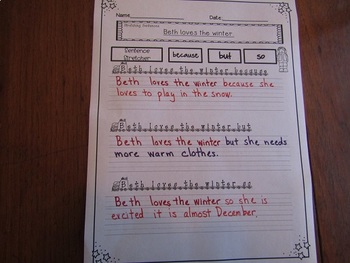 Name Date
Beth loves the winter.
Sentence Stretcher because but so
Beth loves the winter because
Beth loves the winter because she
loves to play in the snow.
Beth loves the winter but
Beth loves the winter but she needs
more warm clothes.
Beth loves the winter so
Beth loves the winter so she is
excited it is almost December.